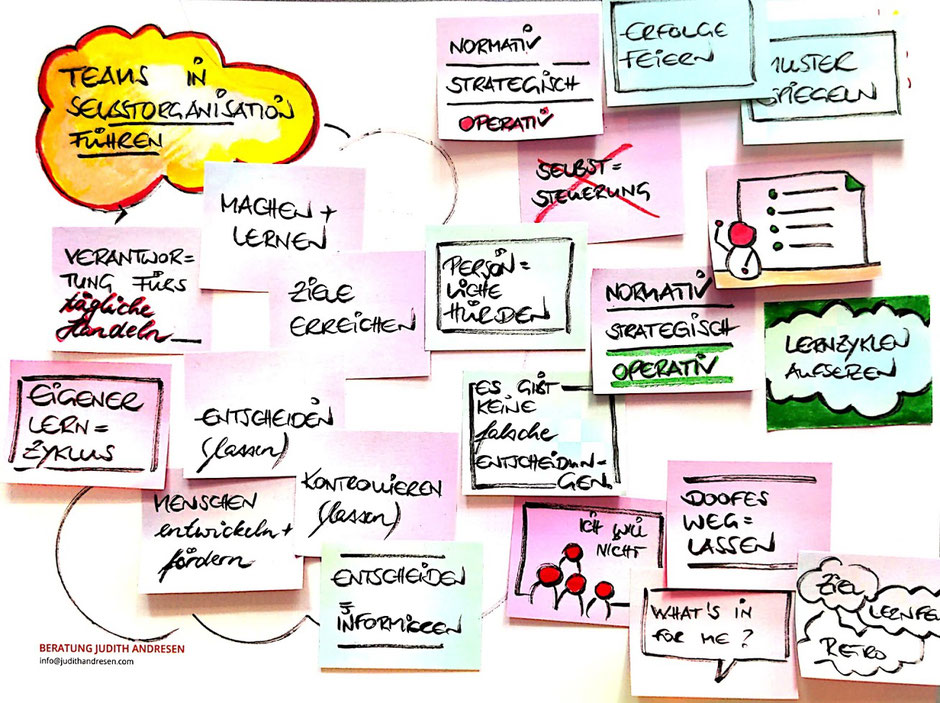 TEAMS IN
SELBSTORGANISATION
FÜHREN
NORMATIV
STRATEGISCH
OPERATIV
ERFOLGE
FEIERN
MUSTER
SPIEGELN
SELBST=
STEUERUNG
MACHEN +
LERNEN
VERANTWOR=
TUNG FÜRS
tägliche
Handeln
ZIELE
ERREICHEN
PERSÖN=
LICHE
HÜRDEN
NORMATIV
STRATEGISCH
OPERATIV
LERNZYKLEN
AUFSETZEN
EIGENER
LERN=
ZYKLUS
ENTSCHEIDEN
(lassen)
ES GIBT
KEINE
falsche
ENTSCHEIDUN=
GEN.
MENSCHEN
entwickeln +
fördern
KONTROLLIEREN
(lassen)
ICH WILL
NICHT
DOOFES
WEG=
LASSEN
ENTSCHEIDEN
INFORMIEREN
WHAT'S IN
FOR ME?
ZIEL
LERNFE
RETRO
BERATUNG JUDITH ANDRESEN
info@judithandresen.com